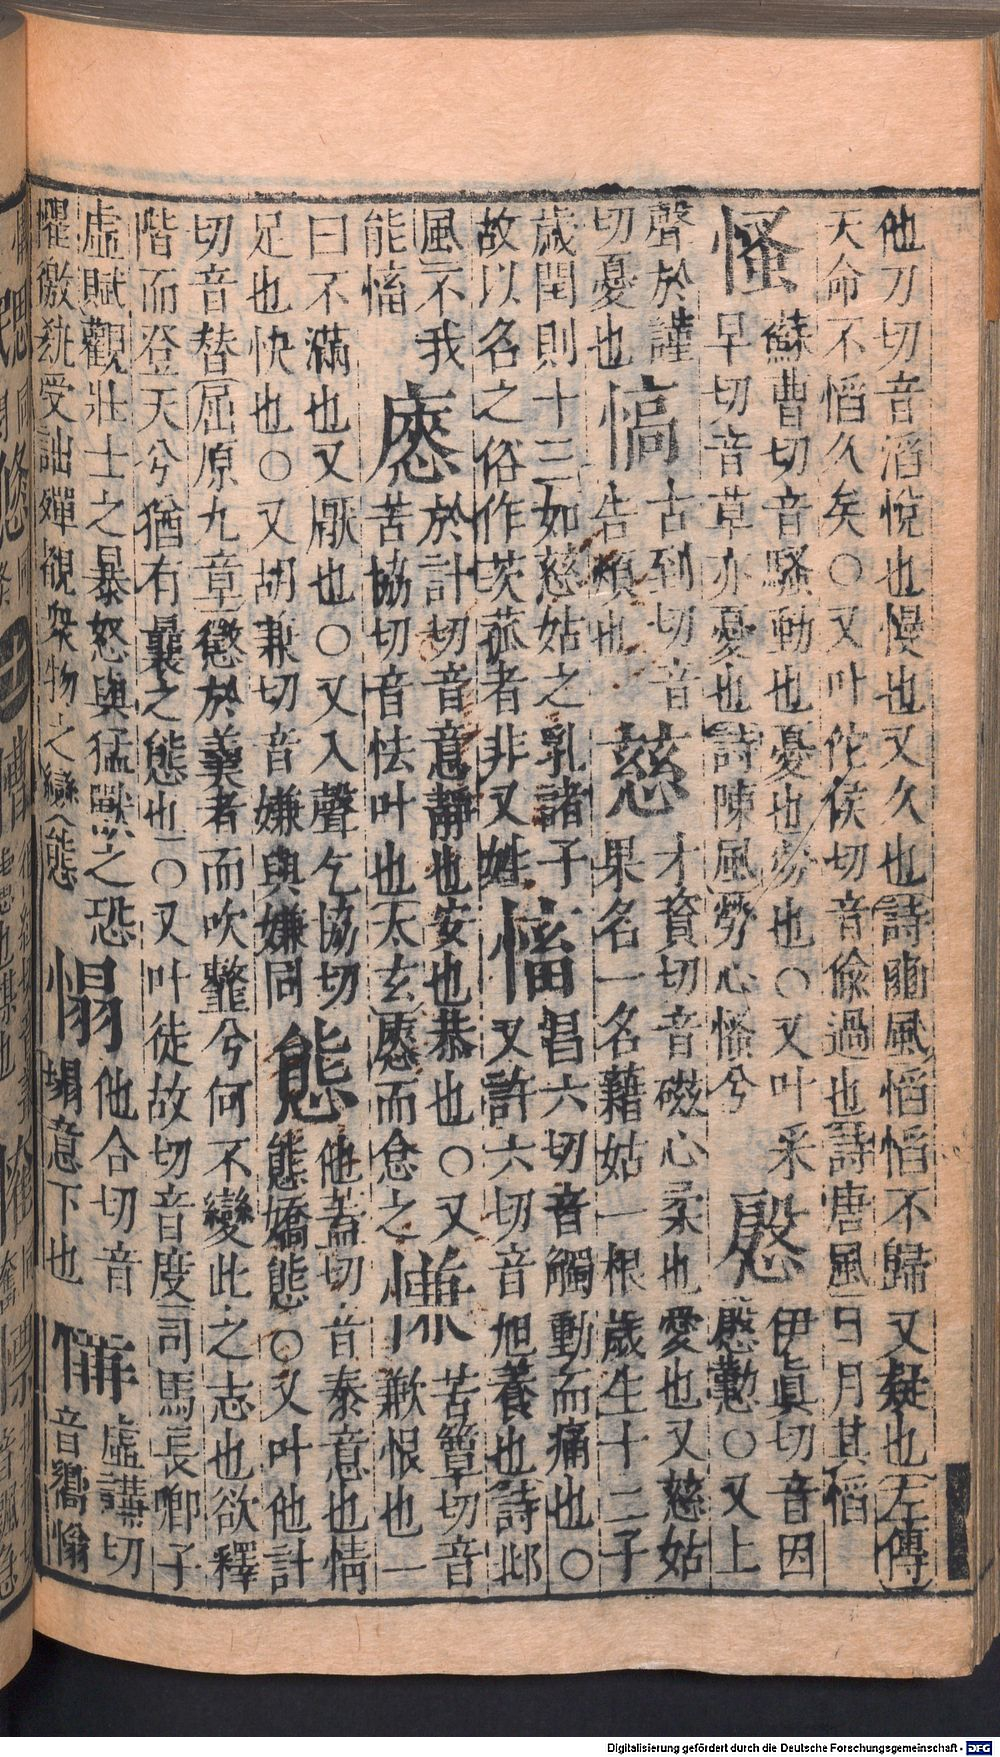 他刀切音滔悅也慢也又久也詩豳風慆慆不歸又疑也左傳
天命不慆久矣○又叶佗侯切音偸過也詩唐風日月其慆
慅
蘇曹切音騷動也憂也勞也○又叶釆
早切音草亦憂也詩陳風勞心慅兮
慇
伊眞切音因
慇懃○又上
聲於謹
切憂也
古到切音
告煩也
慈
才資切音磁心柔也愛也又慈姑
果名一名藉姑一根歲生十二子
歲閏則十三如慈姑之乳諸子
故以名之俗作茨菰者非又姓
慉
昌六切音觸動而痛也○
又許六切音旭養也詩邶
風不我
能慉
瘱
於計切音意靜也安也恭也○又
苦協切音怯叶也太玄瘱而念之
慊
苦簟切音
歉恨也一
曰不滿也又厭也○又入聲乞協切
足也快也○又胡兼切音嫌與嫌同
態
他蓋切音泰意也情
態嬌態○又叶他計
切音替屈原九章懲於羹者而吹虀兮何不變此之志也欲釋
階而登天兮猶有曩之態也○又叶徒故切音度司馬長卿子
虛賦觀壯士之暴怒與猛獸之恐
懼徼受詘殫覩衆物之變態
他合切音
塌意下也
虛講切
音嚮
Digitalisierung gefördert durch die Deutsche Forschungsgemeinschaft - DFG